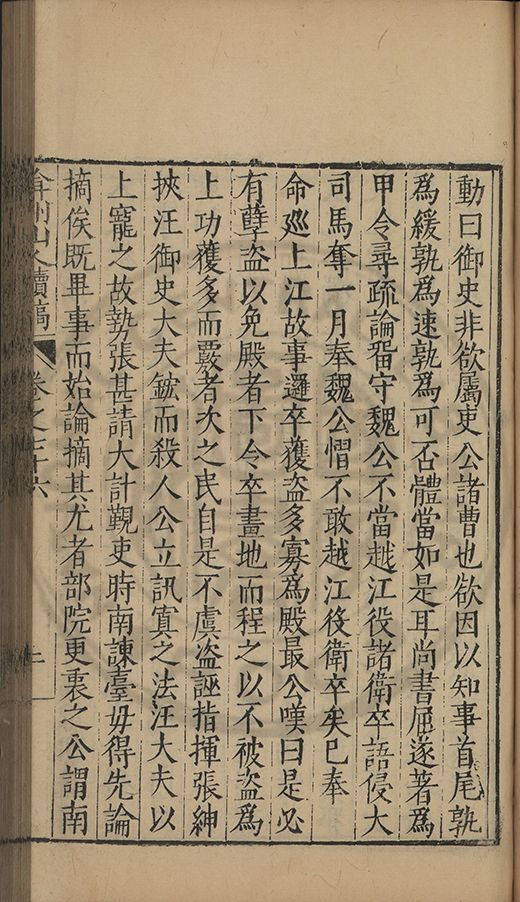 動曰御史非欲屬吏公諸曹也欲因以知事首尾孰
為緩孰為速孰為可否體當如是耳尚書屈遂著為
甲令尋疏論畱守魏公不當越江役諸衛卒語侵大
司馬奪一月奉魏公慴不敢越江役衛卒矣已奉
命廵上江故事邏卒獲盜多寡為殿最公嘆曰是必
有孽盜以免殿者下令卒畫地而程之以不被盜為
上功獲多而覈者次之民自是不虞盜誣指揮張紳
挾汪御史大夫鋐而殺人公立訊寘之法汪大夫以
上寵之故勢張甚請大計覲吏時南諫臺毋得先論
摘俟既畢事而始論摘其尤者部院更裏之公謂南
弇州山人續稿 卷之七十六 二